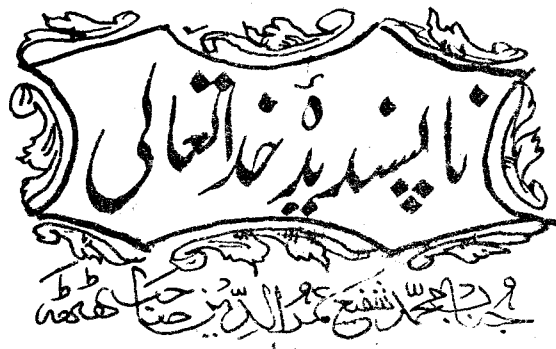 ناپسندیدۂ خدا تعالیٰ
جناب محمد شفیع عمر الدین صاحب ٹھٹھہ